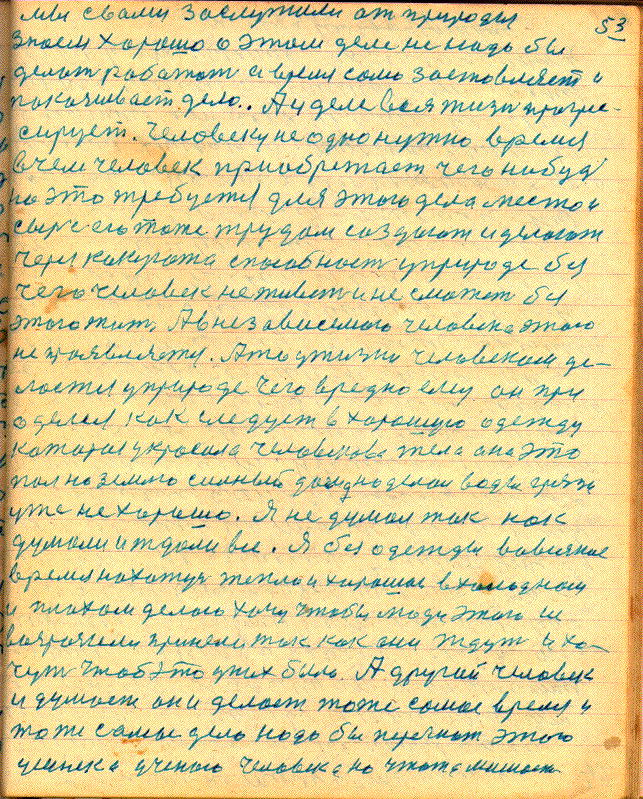 53
мы с вами заслужили от природы
знаем хорошо о этом деле не надо бы
делат работат а время само заставляет и
покачивает дело.. А и деле вся жизн прогре-
сирует. Человеку не одно нужно время
в чем человек приобретает чего нибуд
но это требуется для этого дела место и
сырье его тоже трудом создают и делают
через какую то способност у природе без
чего человек не живет и не сможет без
этого жит, А в независемого человека этого
не проявляяту. А то у жизни человеком де-
лается у природе чего вредно ему он при
оделся как следует в хорошую одежду
каторая украсила человекова тела она это
пол но земного сильный дождь делал воды грязи
уже не хорошо. Я не думал так как
думали и ждали все. Я без одежды во всякое
время нахожуя тепло и хорошое в холодном
и плохом делаю хочу чтобы люди этого не
возрозили приняли так как они ждут и хо-
чут чтоб это у них было. А другий человек
и думает он и делает тоже самое время и
тоже самое дело надо бы перечнат этого
ученого человека но что то мишает